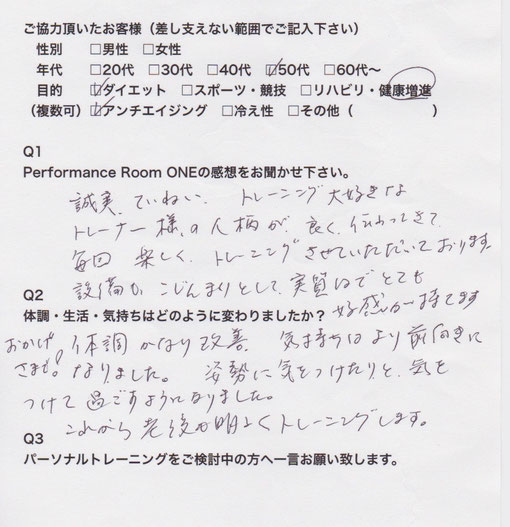 ご協力頂いたお客様（差し支えない範囲でご記入下さい）
性別 □男性 □女性
年代 □20代 □30代 □40代 ☑50代 □60代〜
目的 ☑ダイエット □スポーツ・競技 □リハビリ・健康増進
（複数可） ☑アンチエイジング □冷え性 □その他（ ）
Q1
Performance Room ONEの感想をお聞かせ下さい。
誠実、ていねい、トレーニング大好きな
トレーナー様の人柄が、良く、伝わってきて、
毎回 楽しく、トレーニングさせていただいております。
設備が こじんまりとして、実質 とても
好感が持てます
Q2
体調・生活・気持ちはどのように変わりましたか？
おかげさまで、体調 かなり改善、気持ちは より前向きに
なりました。姿勢に気をつけたりと、気を
つけて過ごすようになりました。
これから老後も明るくトレーニングします。
Q3
パーソナルトレーニングをご検討中の方へ一言お願い致します。